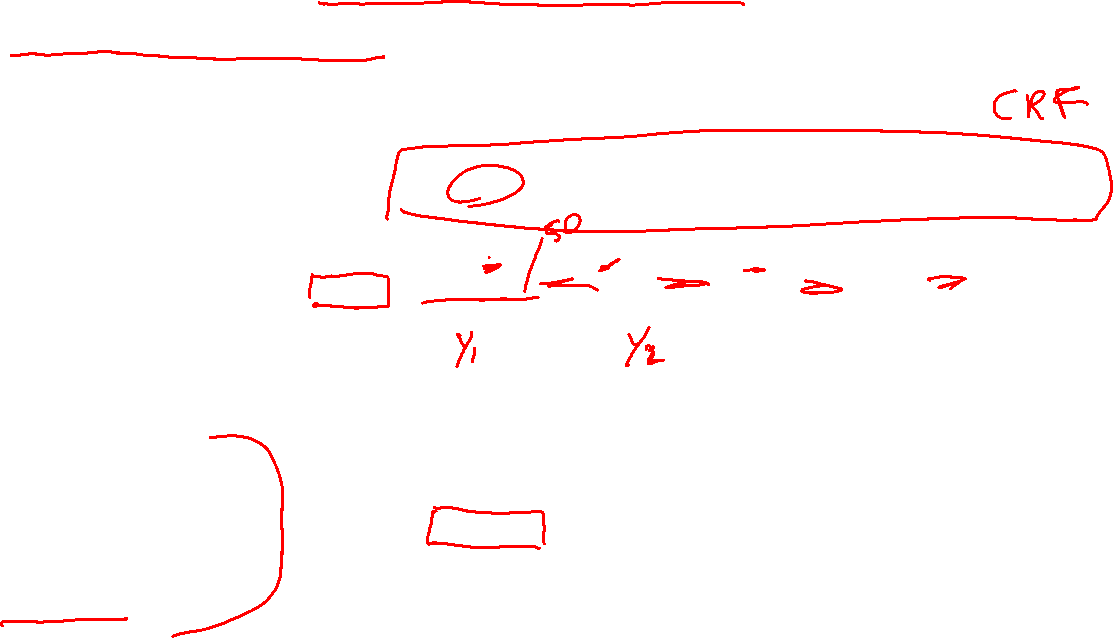 CRF
50
Y1
Y2